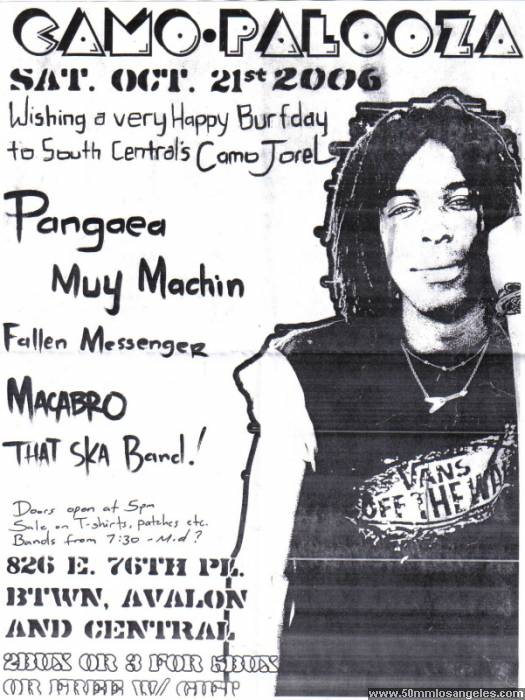 CAMO•PALOOZA
SAT. OCT. 21st 2006
Wishing a very Happy Burfday
to South Central's Camo Jorel
Pangaea
Muy Machin
Fallen Messenger
MACABRO
THAT SKA Band!
Doors open at 5pm
Sale on T-shirts, patches etc.
Bands from 7:30 - Mid?
826 E. 76TH PL.
BTWN, AVALON
AND CENTRAL
2BUX OR 3 FOR 5BUX
OR FREE W/ GIFT
VANS
OFF THE WA
www.50mmlosangeles.com